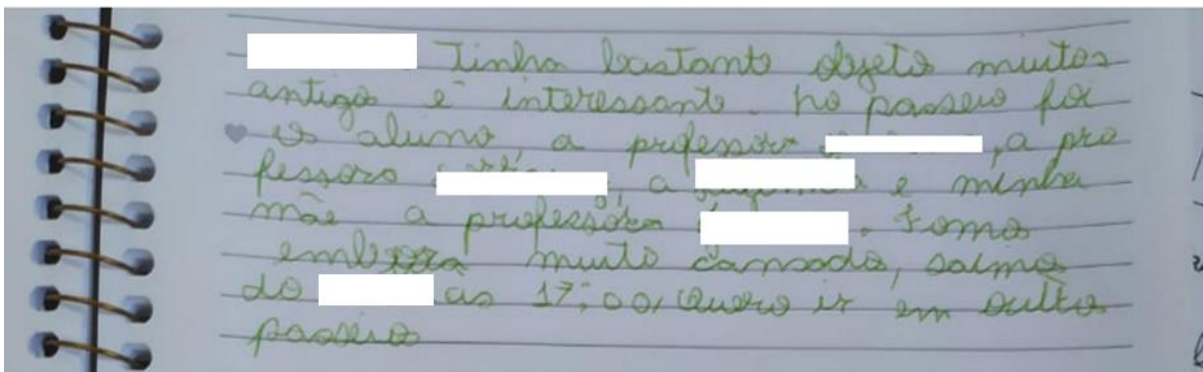 Tinha bastante objeto muitos
antigo e interessante. no passeio foi
os aluno, a professora , a pro
fessora , a e minha
mãe a professora . Fomo
embora muito cansado, saimo
do as 17:00, Quero ir em outro
passeio